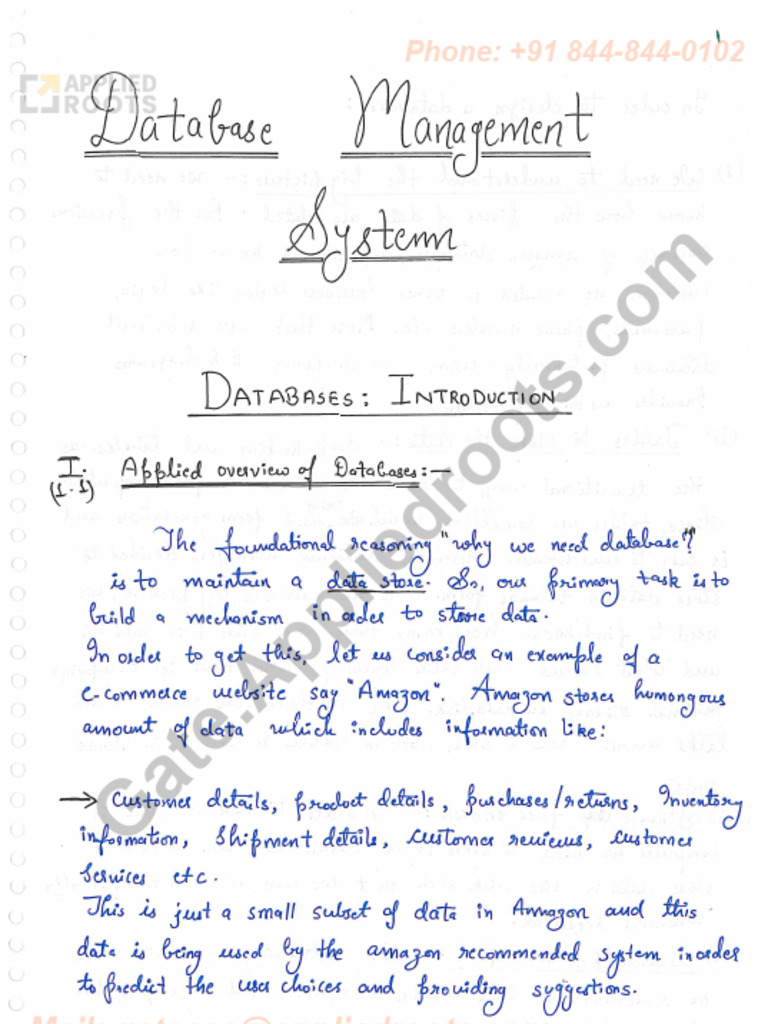 1
Phone: +91 844-844-0102
APPLIED
ROOTS
Database Management
System
DATABASES: INTRODUCTION
I. Applied overview of Databases:—
(1.1)
The foundational reasoning "why we need database?"
is to maintain a data store. So, our primary task is to
build a mechanism in order to store data.
In order to get this, let us consider an example of a
e-commerce website say "Amazon". Amazon stores humongous
amount of data which includes information like:
→ Customer details, product details, purchases/returns, Inventory
information, Shipment details, customer reviews, customer
services etc.
This is just a small subset of data in Amazon and this
data is being used by the amazon recommended system in order
to predict the user choices and providing suggestions.
Gate.Appliedroots.com